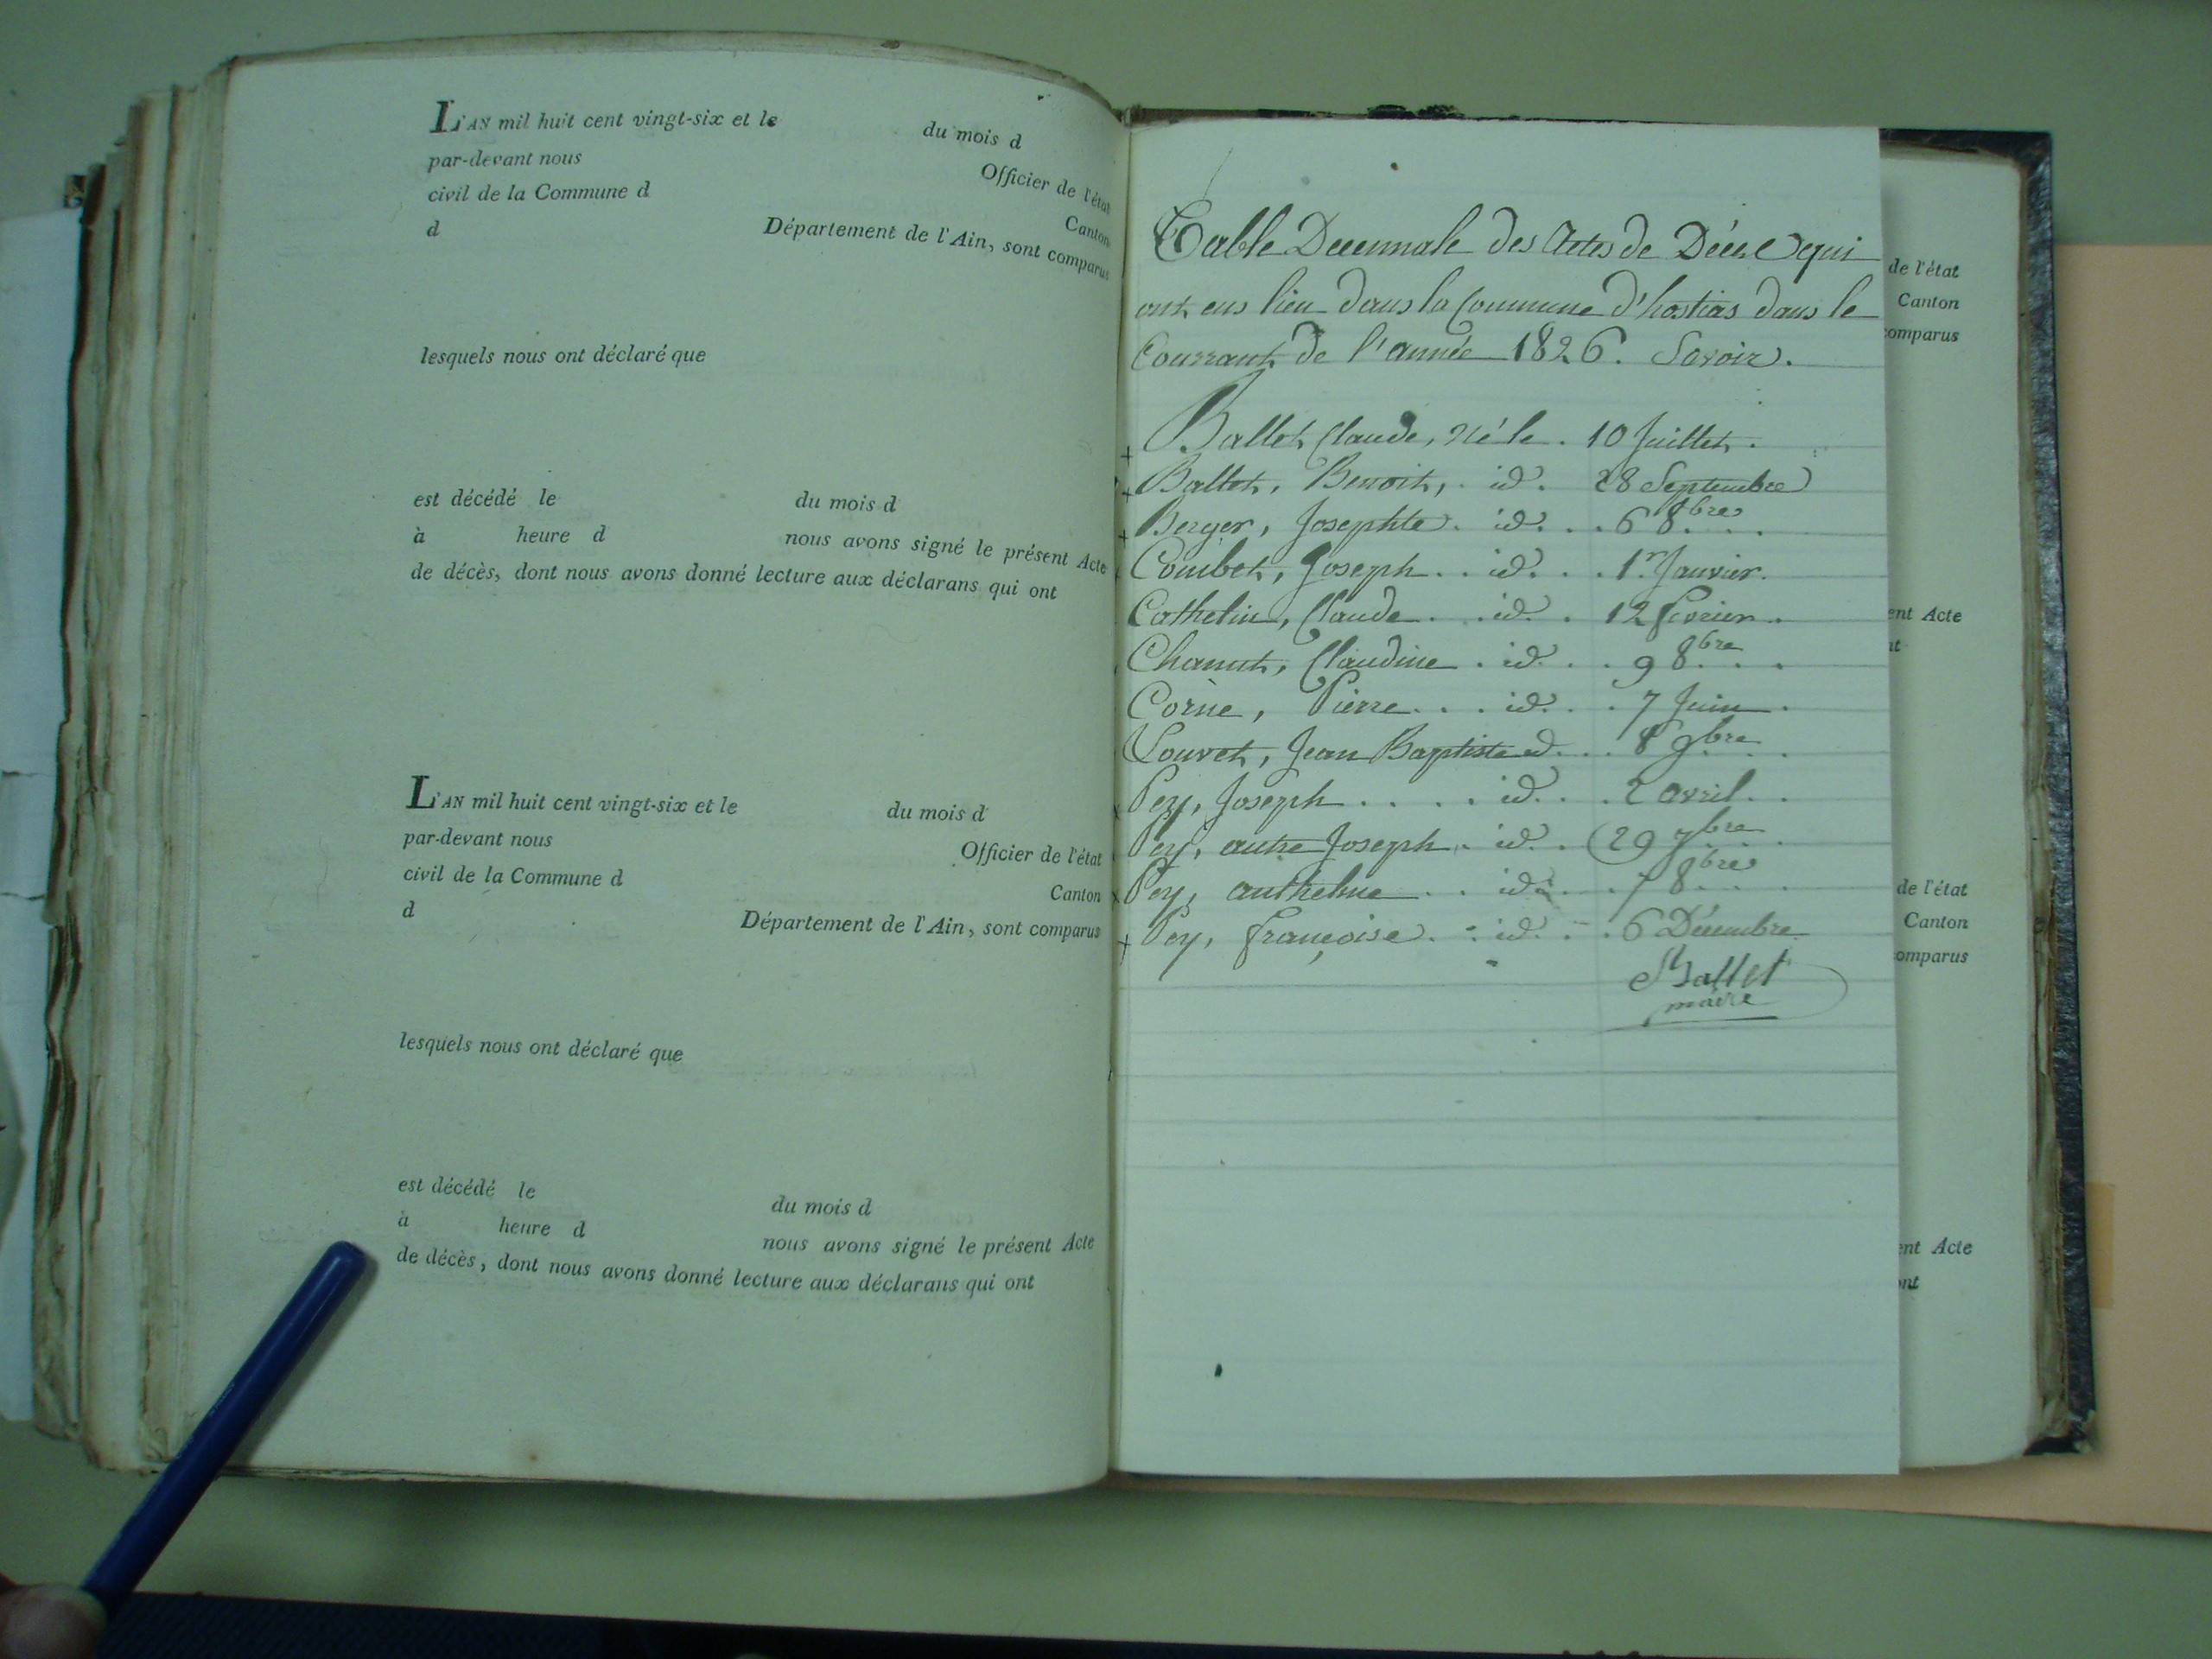 L'AN mil huit cent vingt-six et le du mois d
par-devant nous Officier de l'état
civil de la Commune d Canton
d Département de l'Ain, sont comparus
lesquels nous ont déclaré que
est décédé le du mois d
à heure d nous avons signé le présent Acte
de décès, dont nous avons donné lecture aux déclarans qui ont
L'AN mil huit cent vingt-six et le du mois d
par-devant nous Officier de l'état
civil de la Commune d Canton
d Département de l'Ain, sont comparus
lesquels nous ont déclaré que
est décédé le du mois d
à heure d nous avons signé le présent Acte
de décès, dont nous avons donné lecture aux déclarans qui ont
Table Decennale des Actes de Décès qui
ont eus lieu dans la Commune d'hostias dans le
Courrant de l'année 1826. Savoir.
Ballet Claude, Né le . 10 Juillet.
Ballet, Benoit, . id. 28 Septembre
Berger, Josephte. id. . . 6 8bre . . .
Combet, Joseph . . id. . . 1er Janvier.
Cathelin, Claude . . id. . 12 fevrier .
Chanut, Claudine . id. . . 9 8bre . .
Corne, Pierre . . . id. . . 7 Juin .
Louvet, Jean Baptiste id. . . 8 9bre . .
Pey, Joseph . . . . id. . . 2 avril . .
Pey, autre Joseph . id. . 29 7bre . .
Pey, anthelme . . id. . . 7 8bre . . .
Pey, françoise . . id. . . 6 Décembre
Ballet
maire
de l'état
Canton
comparus
ent Acte
nt
de l'état
Canton
omparus
ent Acte
ont